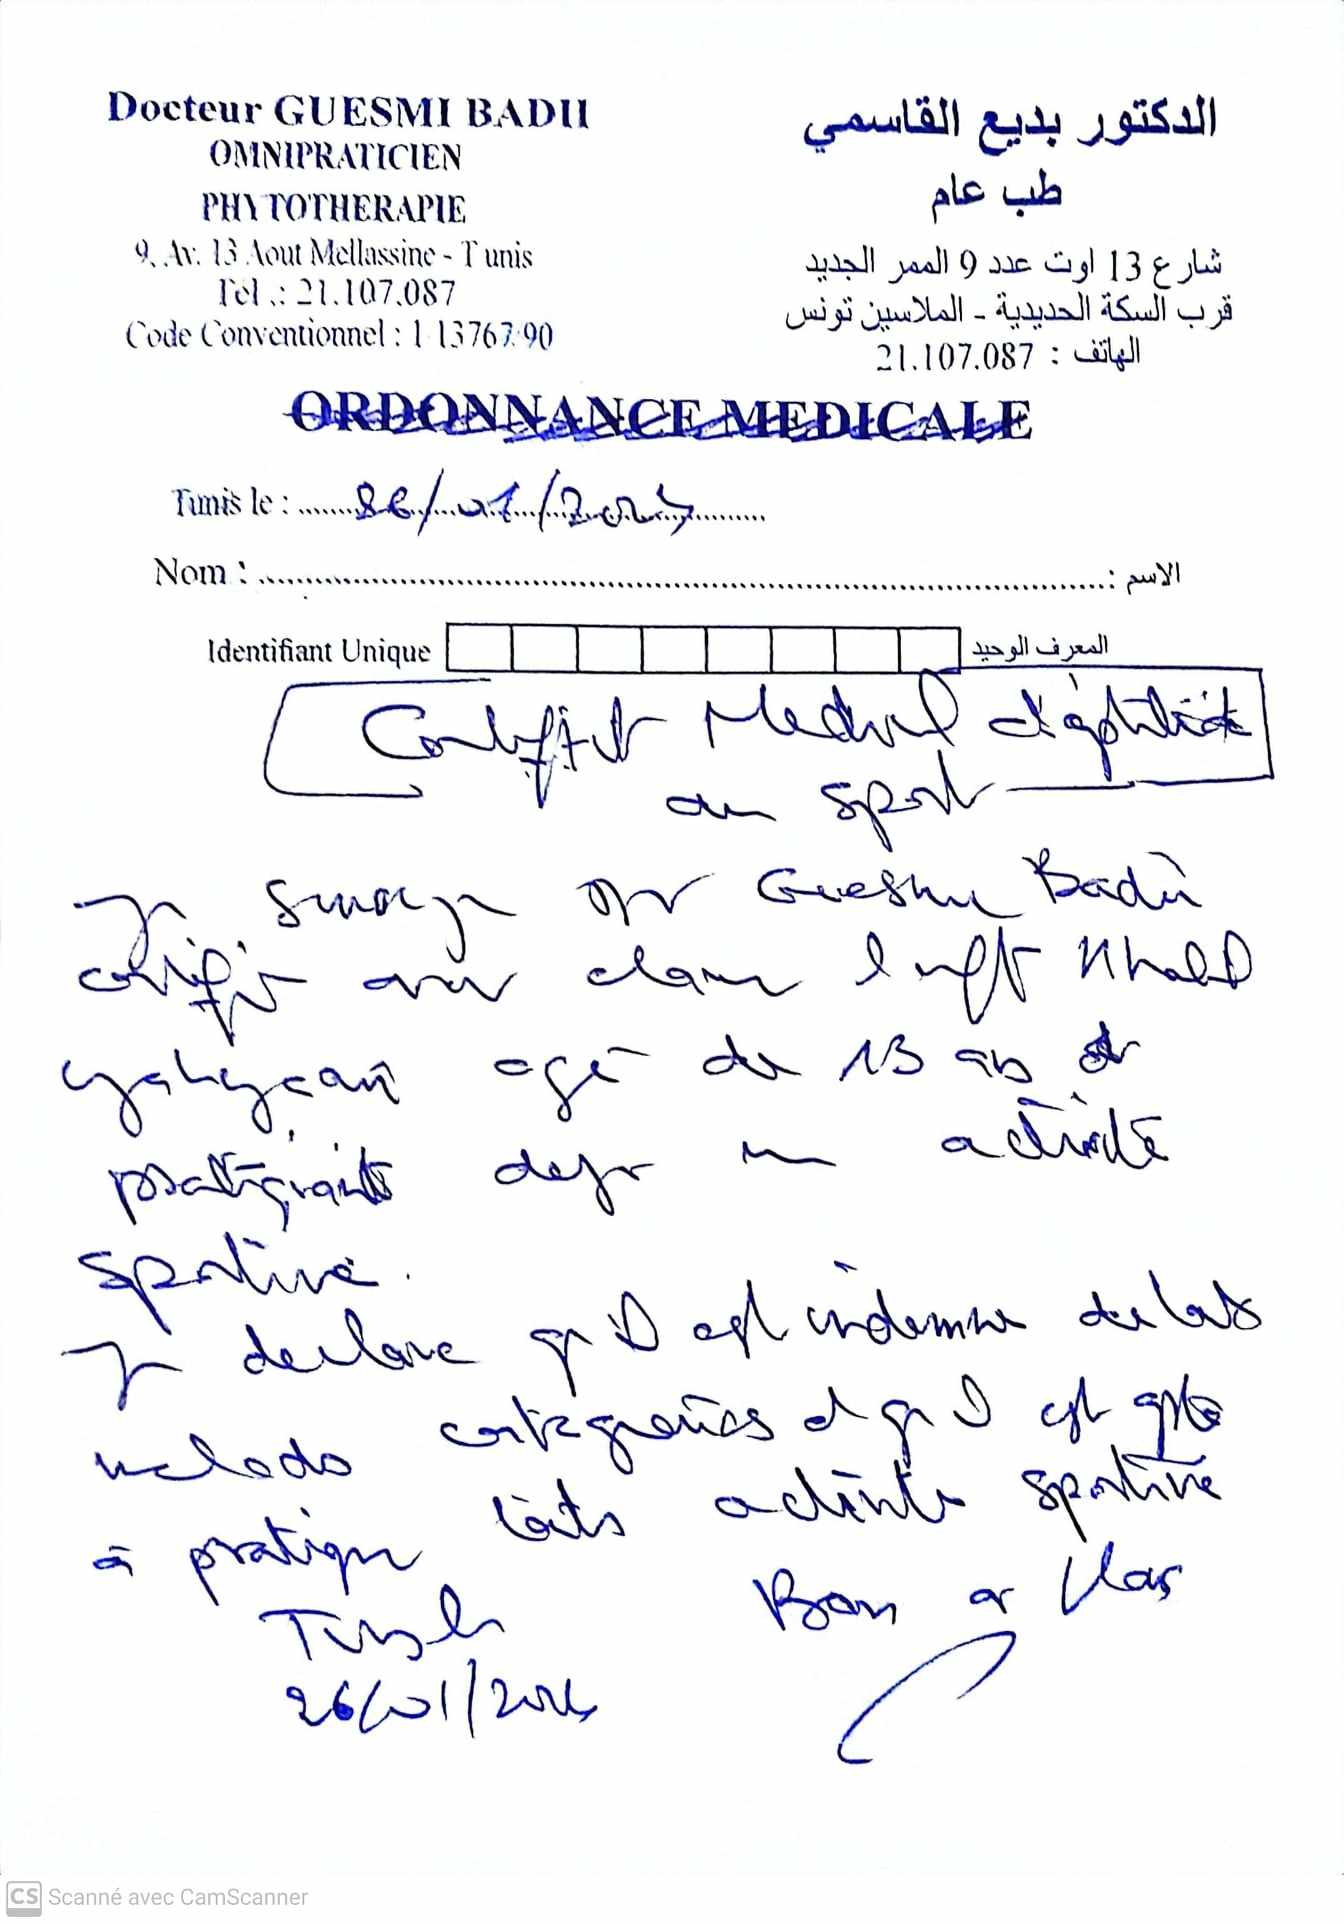 Docteur GUESMI BADII
OMNIPRATICIEN
PHYTOTHERAPIE
9, Av. 13 Aout Mellassine - Tunis
Tél .: 21.107.087
Code Conventionnel : 1 13767 90
الدكتور بديع القاسمي
طب عام
شارع 13 اوت عدد 9 الممر الجديد
قرب السكة الحديدية - الملاسين تونس
الهاتف : 21.107.087
ORDONNANCE MEDICALE
Tunis le : 26/01/202
Nom : الاسم :
Identifiant Unique المعرف الوحيد
Certificat Medical d'aptitude
au sport
Je soussigne Dr Guesmi Badii
certifie avoir l'enft Khaled
agé de 13 ans et
pratiquant deja une activité
sportive.
Je declare qu'il est indemne de tts
maladies contagieuses et qu'il est apte
à pratiquer toute activité sportive
Tunis le
26/01/202